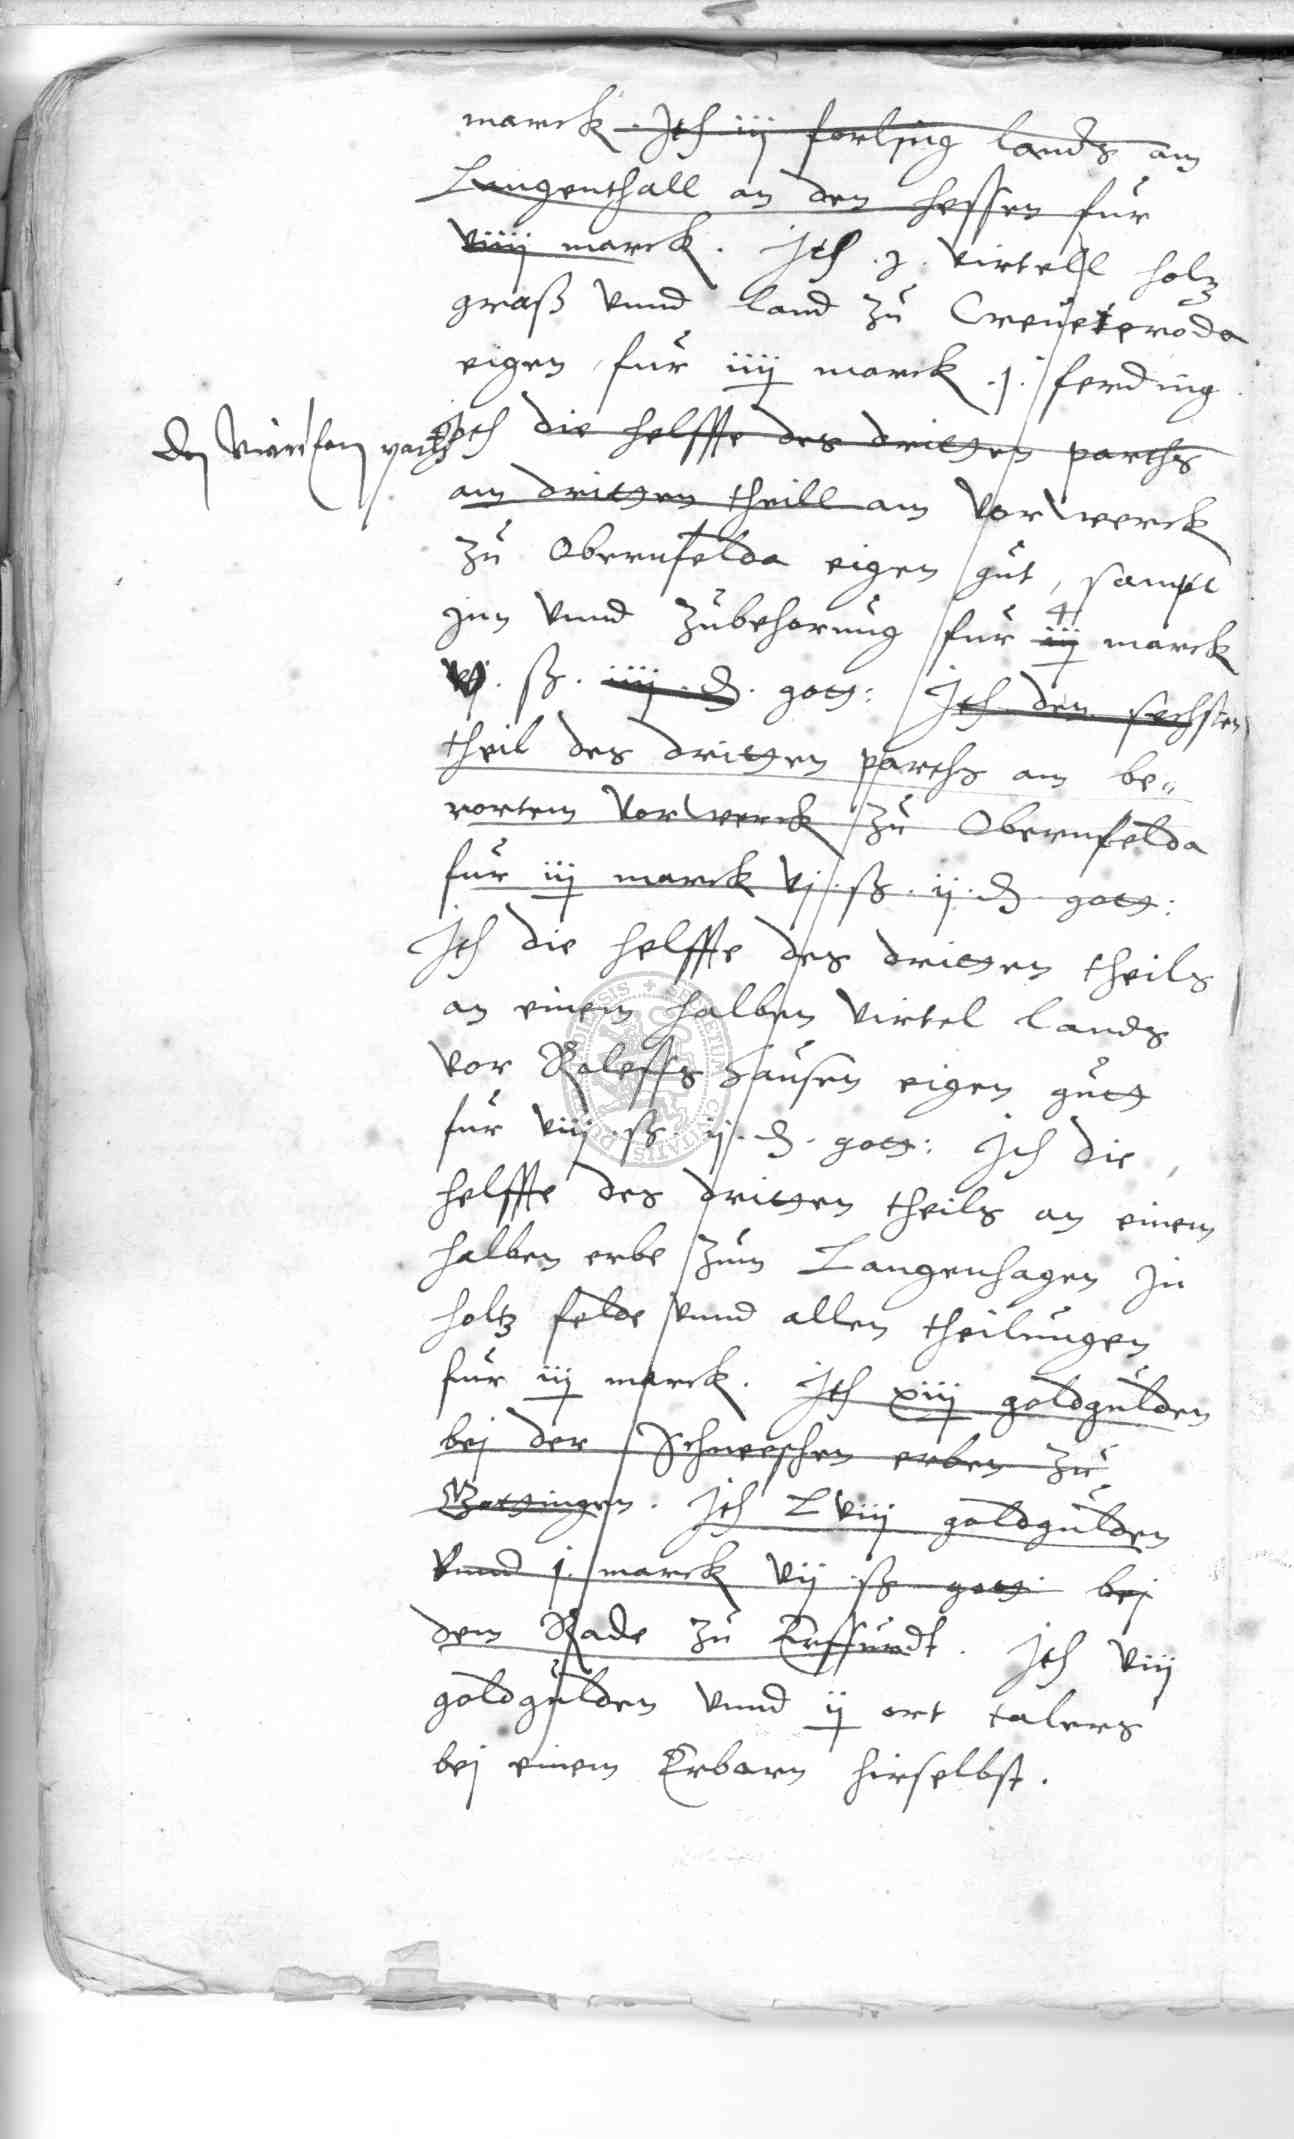 marck. Jth iij forling lands am
Langenthall an den hessen fur
viiij marck. Jth .j. virtell holtz
graß vnnd land zu Creuteroda
eigen fur iiij marck .j. ferding
Den part
Jth die helffte des dritten parths
am dritten theill am Vorwerck
zu Obernfelda eigen gut, sampt
4
jnn vnnd zubehorung fur iij marck
vj. ß. iiij. ₰. gott: Jth den sechsten
theil des dritten parths am be„
rortem Vorwerck zu Obernfelda
fur iij marck vj. ß. ij. ₰. gott:
Jth die helffte des dritten theils
an einem halben virtel lands
vor Roleffshausen eigen gutt
fur viij. ß. ij. ₰. gott: Jth die
helffte des dritten theils an einem
halben erbe zum Langenhagen jn
holtz felde vnnd allen theilungen
fur iij marck. Jth xiij goldgulden
bej der erben zu
Gottingen. Jth Lviij goldgulden
vnnd j. marck vij ß gott: bej
dem Rade zu Erffurdt. Jth viij
goldgulden vnnd ij ort talers
bej einem Erbarn hirselbst.